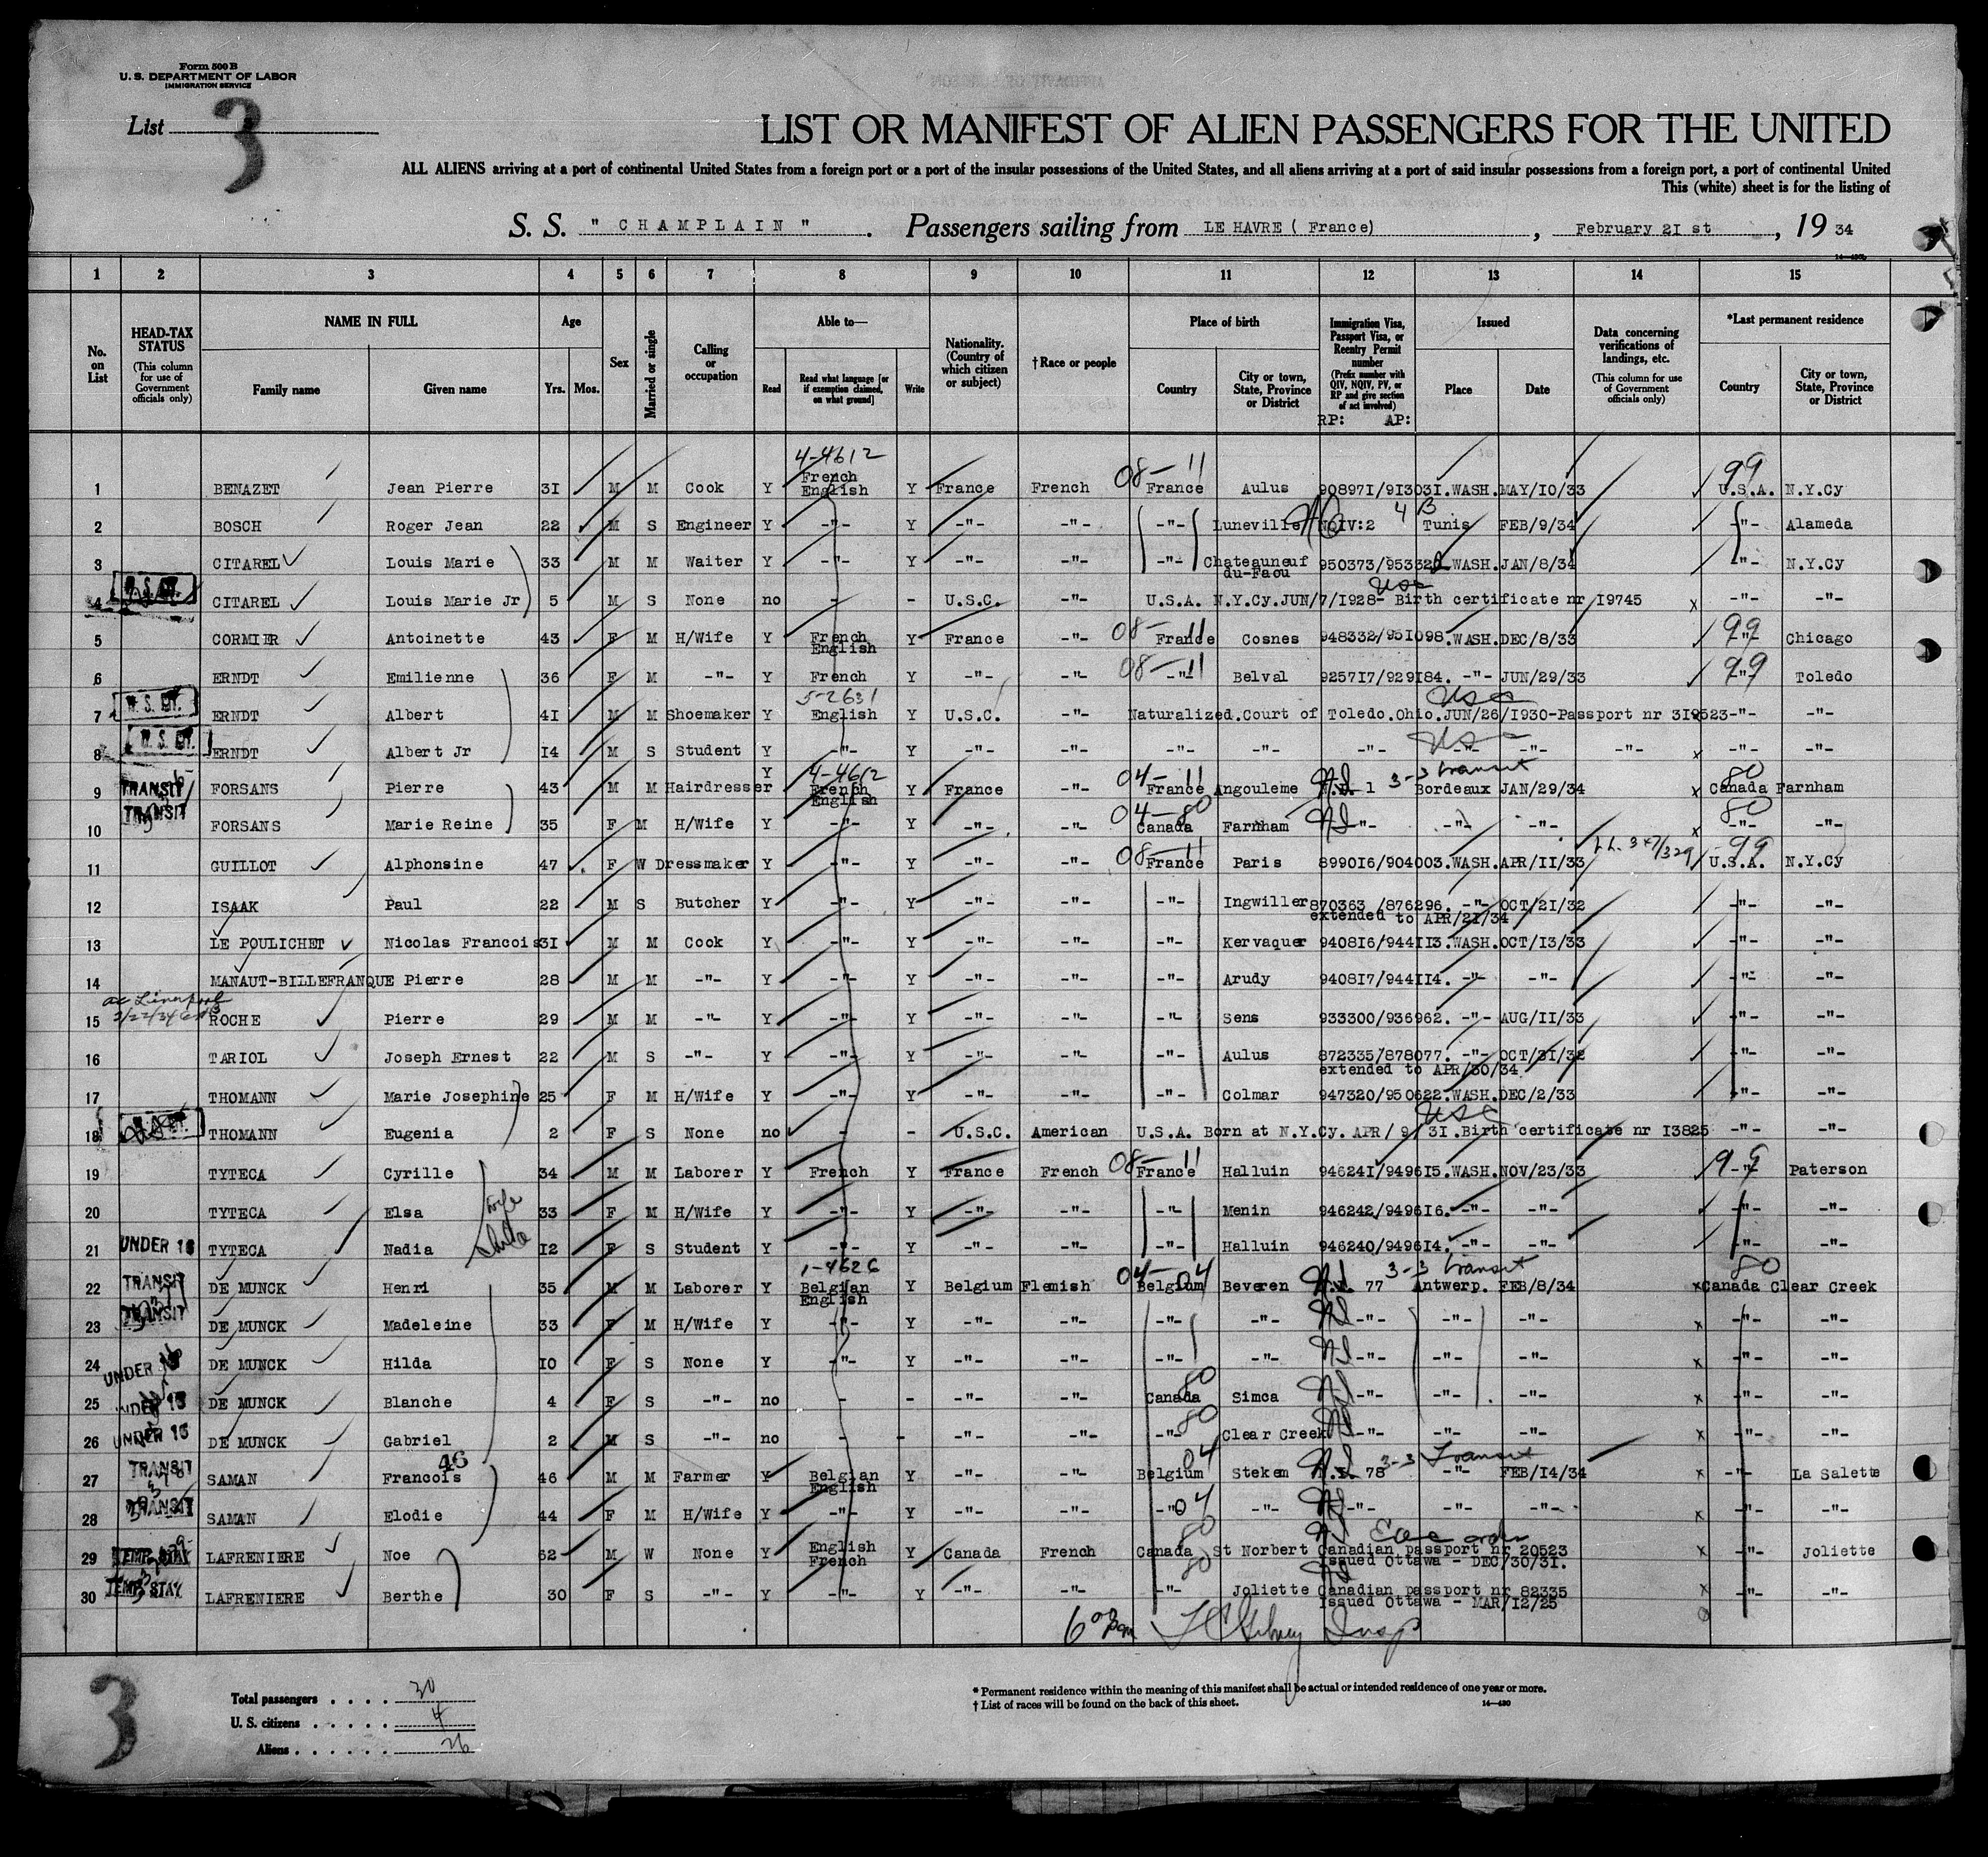 Form 500 B
U. S. DEPARTMENT OF LABOR
IMMIGRATION SERVICE
List 3
LIST OR MANIFEST OF ALIEN PASSENGERS FOR THE UNITED
ALL ALIENS arriving at a port of continental United States from a foreign port or a port of the insular possessions of the United States, and all aliens arriving at a port of said insular possessions from a foreign port, a port of continental United
This (white) sheet is for the listing of
S. S. " CHAMPLAIN " . Passengers sailing from LE HAVRE ( France) , February 2I st , 19 34
1 2 3 4 5 6 7 8 9 10 11 12 13 14 15
No. on List
HEAD-TAX STATUS (This column for use of Government officials only)
NAME IN FULL Family name Given name
Age Yrs. Mos.
Sex
Married or single
Calling or occupation
Able to— Read Read what language [or if exemption claimed, on what ground] Write
Nationality. (Country of which citizen or subject)
† Race or people
Place of birth Country City or town, State, Province or District
Immigration Visa, Passport Visa, or Reentry Permit number (Prefix number with QIV, NQIV, PV, or RP and give section of act involved)
RP: AP:
Issued Place Date
Data concerning verifications of landings, etc. (This column for use of Government officials only)
*Last permanent residence Country City or town, State, Province or District
4-4612 08-11 99
1 BENAZET Jean Pierre 3I M M Cook Y French English Y France French France Aulus 90897I/9I303I.WASH.MAY/I0/33 U.S.A. N.Y.Cy
2 BOSCH Roger Jean 22 M S Engineer Y -"- Y -"- -"- -"- Luneville NQIV:2 4 B Tunis FEB/9/34 -"- Alameda
3 CITAREL Louis Marie 33 M M Waiter Y -"- Y -"- -"- -"- Chateauneuf du-Faou 950373/95332 WASH.JAN/8/34 -"- N.Y.Cy
4 CITAREL Louis Marie Jr 5 M S None no - - U.S.C. -"- U.S.A. N.Y.Cy.JUN/7/I928- Birth certificate nr I9745 -"- -"-
5 CORMIER Antoinette 43 F M H/Wife Y French English Y France -"- 08-11 France Cosnes 948332/95I098.WASH.DEC/8/33 99 -"- Chicago
6 ERNDT Emilienne 36 F M -"- Y French Y -"- -"- 08-11 -"- Belval 9257I7/929I84. -"- JUN/29/33 99 Toledo
7 U.S. CIT. ERNDT Albert 4I M M Shoemaker Y 5-2631 English Y U.S.C. -"- Naturalized.Court of Toledo.Ohio.JUN/26/I930-Passport nr 3I9523 -"- -"-
8 U.S. CIT. ERNDT Albert Jr I4 M S Student Y -"- Y -"- -"- -"- -"- -"- -"- -"- -"- -"- -"-
9 TRANSIT FORSANS Pierre 43 M M Hairdresser Y 4-4612 French English Y France -"- 04-11 France Angouleme 1 3-3 transit Bordeaux JAN/29/34 80 Canada Farnham
10 TRANSIT FORSANS Marie Reine 35 F M H/Wife Y -"- Y -"- -"- 04-80 Canada Farnham -"- -"- -"- 80 -"- -"-
11 GUILLOT Alphonsine 47 F W Dressmaker Y -"- Y -"- -"- 08-11 France Paris 8990I6/904003.WASH.APR/II/33 347/329 99 U.S.A. N.Y.Cy
12 ISAAK Paul 22 M S Butcher Y -"- Y -"- -"- -"- Ingwiller 870363 /876296. -"- OCT/2I/32 extended to APR/2I/34 -"- -"-
13 LE POULICHET Nicolas Francois 3I M M Cook Y -"- Y -"- -"- -"- Kervaquer 9408I6/944II3.WASH.OCT/I3/33 -"- -"-
14 MANAUT-BILLEFRANQUE Pierre 28 M M -"- Y -"- Y -"- -"- -"- Arudy 9408I7/944II4. -"- -"- -"- -"-
15 ROCHE Pierre 29 M M -"- Y -"- Y -"- -"- -"- Sens 933300/936962. -"- AUG/II/33 -"- -"-
16 TARIOL Joseph Ernest 22 M S -"- Y -"- Y -"- -"- -"- Aulus 872335/878077. -"- OCT/3I/32 extended to APR/30/34 -"- -"-
17 THOMANN Marie Josephine 25 F M H/Wife Y -"- Y -"- -"- -"- Colmar 947320/950622.WASH.DEC/2/33 -"- -"-
18 THOMANN Eugenia 2 F S None no - - U.S.C. American U.S.A. Born at N.Y.Cy. APR/ 9/ 3I.Birth certificate nr I3825 -"- -"-
19 TYTECA Cyrille 34 M M Laborer Y French Y France French 08-11 France Halluin 94624I/9496I5.WASH.NOV/23/33 99 -"- Paterson
20 TYTECA Elsa 33 F M H/Wife Y -"- Y -"- -"- -"- Menin 946242/9496I6. -"- -"- -"- -"-
21 UNDER 16 TYTECA Nadia I2 F S Student Y -"- Y -"- -"- -"- Halluin 946240/9496I4. -"- -"- -"- -"-
22 TRANSIT DE MUNCK Henri 35 M M Laborer Y 1-4626 Belgian English Y Belgium Flemish 04-04 Belgium Beveren 77 3-3 transit Antwerp. FEB/8/34 80 Canada Clear Creek
23 TRANSIT DE MUNCK Madeleine 33 F M H/Wife Y -"- Y -"- -"- -"- -"- -"- -"- -"- -"- -"-
24 UNDER 16 DE MUNCK Hilda I0 F S None Y -"- Y -"- -"- -"- -"- -"- -"- -"- -"- -"-
25 UNDER 16 DE MUNCK Blanche 4 F S -"- no - - -"- -"- 80 Canada Simca -"- -"- -"- -"- -"-
26 UNDER 16 DE MUNCK Gabriel 2 M S -"- no - - -"- -"- 80 -"- Clear Creek -"- -"- -"- -"- -"-
27 TRANSIT SAMAN Francois 46 46 M M Farmer Y Belgian English Y -"- -"- 04 Belgium Steken 78 3-3 Transit -"- FEB/I4/34 -"- La Salette
28 TRANSIT SAMAN Elodie 44 F M H/Wife Y -"- Y -"- -"- 04 -"- -"- -"- -"- -"- -"- -"-
29 TEMP. STAY LAFRENIERE Noe 62 M W None Y English French Y Canada French 80 Canada St Norbert Canadian passport nr 20523 Issued Ottawa - DEC/30/3I. -"- Joliette
30 TEMP. STAY LAFRENIERE Berthe 30 F S -"- Y -"- Y -"- -"- 80 -"- Joliette Canadian passport nr 82335 Issued Ottawa - MAR/I2/25 -"- -"-
3
Total passengers . . . . 30
U. S. citizens . . . . . 4
Aliens . . . . . . 26
* Permanent residence within the meaning of this manifest shall be actual or intended residence of one year or more.
† List of races will be found on the back of this sheet. 14—480